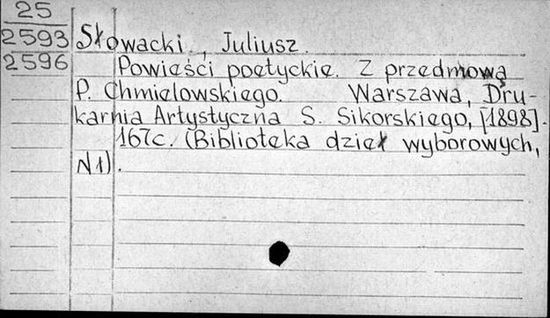 25
2593
2596
Słowacki, Juliusz.
Powieści poetyckie. Z przedmową
P. Chmielowskiego. Warszawa, Dru-
karnia Artystyczna S. Sikorskiego, [1898].
167c. (Biblioteka dzieł wyborowych,
N1).